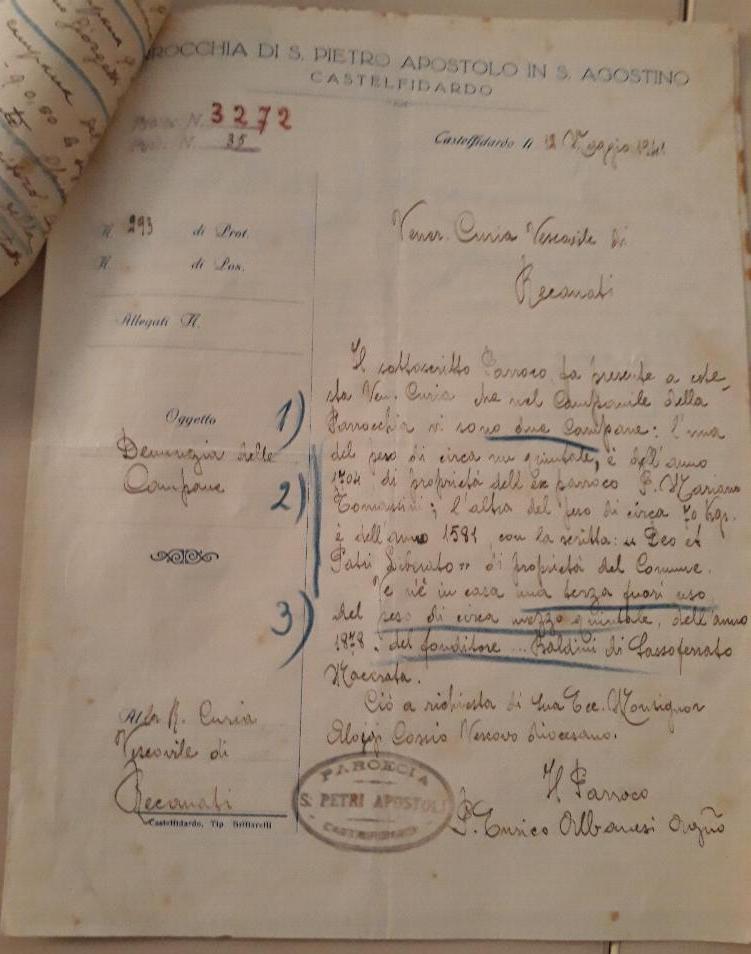 PARROCCHIA DI S. PIETRO APOSTOLO IN S. AGOSTINO
CASTELFIDARDO
3272
35
Castelfidardo li 12 Maggio 1941
N. 293 di Prot.
N. di Pos.
Allegati N.
Oggetto
Denunzia delle
Campane
Vener. Curia Vescovile di
Recanati
Il sottoscritto Parroco fa presente a cote-
sta Ven. Curia che nel Campanile della
1)
Parrocchia vi sono due Campane: l'una
del peso di circa un quintale, è dell'anno
2)
1704 di proprietà dell'Ex parroco P. Mariano
Tomassini; l'altra del peso di circa 70 Kgr.
è dell'anno 1581, con la scritta: " Deo et
Patri Liberato " di proprietà del Comune.
Ve n'è in casa una terza fuori uso
3)
del peso di circa mezzo quintale, dell'anno
1878: del fonditore ... Baldini di Sassoferrato
Macerata.
Ciò a richiesta di Sua Ecc. Monsignor
Aloigi Cossio Vescovo diocesano.
Il Parroco
P. Enrico Albanesi Agno
Alla R. Curia
Vescovile di
Recanati
Castelfidardo, Tip. Brillarelli
PAROECIA
S. PETRI APOSTOLI
CASTELFIDARDO